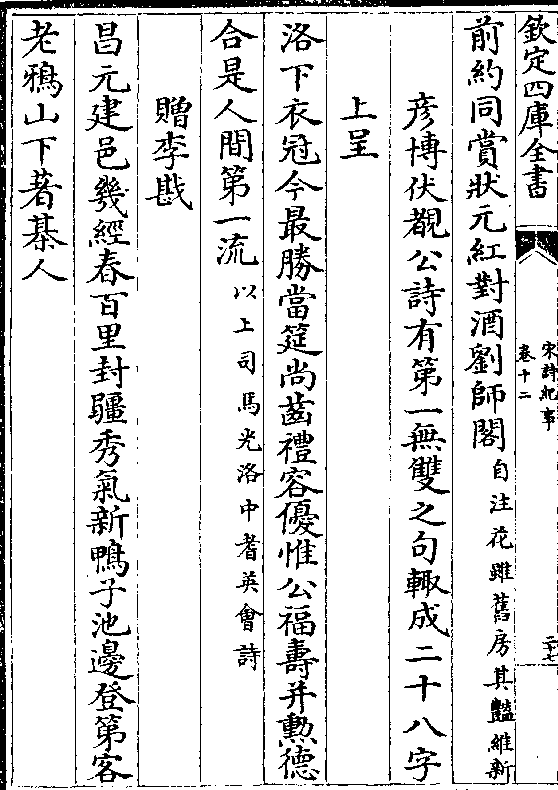 欽定四庫全書
宋詩紀事
卷十二
二十七
前約同賞狀元紅對酒劉師閣自注花雖舊房其豔維新
彥博伏觀公詩有第一無雙之句輙成二十八字
上呈
洛下衣冠今最勝當筵尚齒禮容優惟公福壽并勲德
合是人間第一流以上司馬光洛中耆英會詩
贈李戡
昌元建邑幾經春百里封疆秀氣新鴨子池邊登第客
老鴉山下著棊人